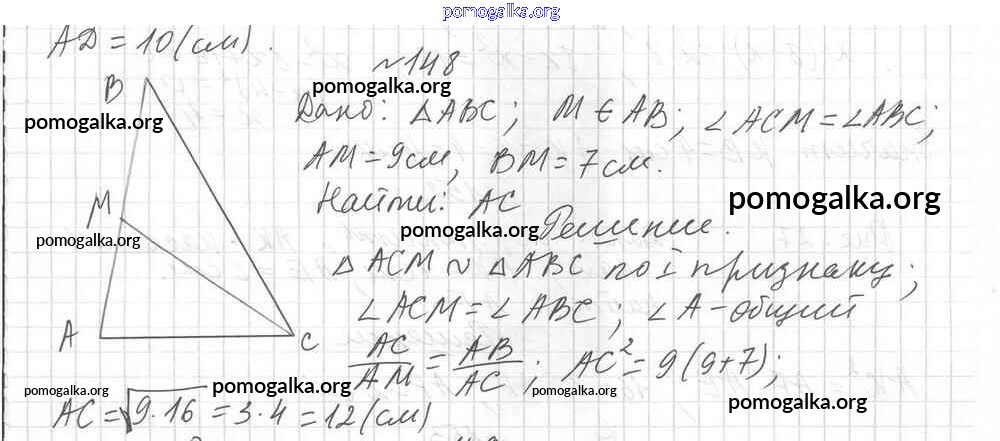 pomogalka.org
AD = 10 (см).
№148
pomogalka.org
B
Дано: △ABC; M ∈ AB; ∠ACM = ∠ABC;
pomogalka.org
AM = 9см, BM = 7см.
Найти: AC
pomogalka.org
M
pomogalka.org
pomogalka.org
Решение.
△ACM ~ △ABC по I признаку;
∠ACM = ∠ABC; ∠A - общий
A
C
AC/AM = AB/AC; AC² = 9(9+7);
pomogalka.org
pomogalka.org
pomogalka.org
pomogalka.org
AC = √9·16 = 3·4 = 12 (см)